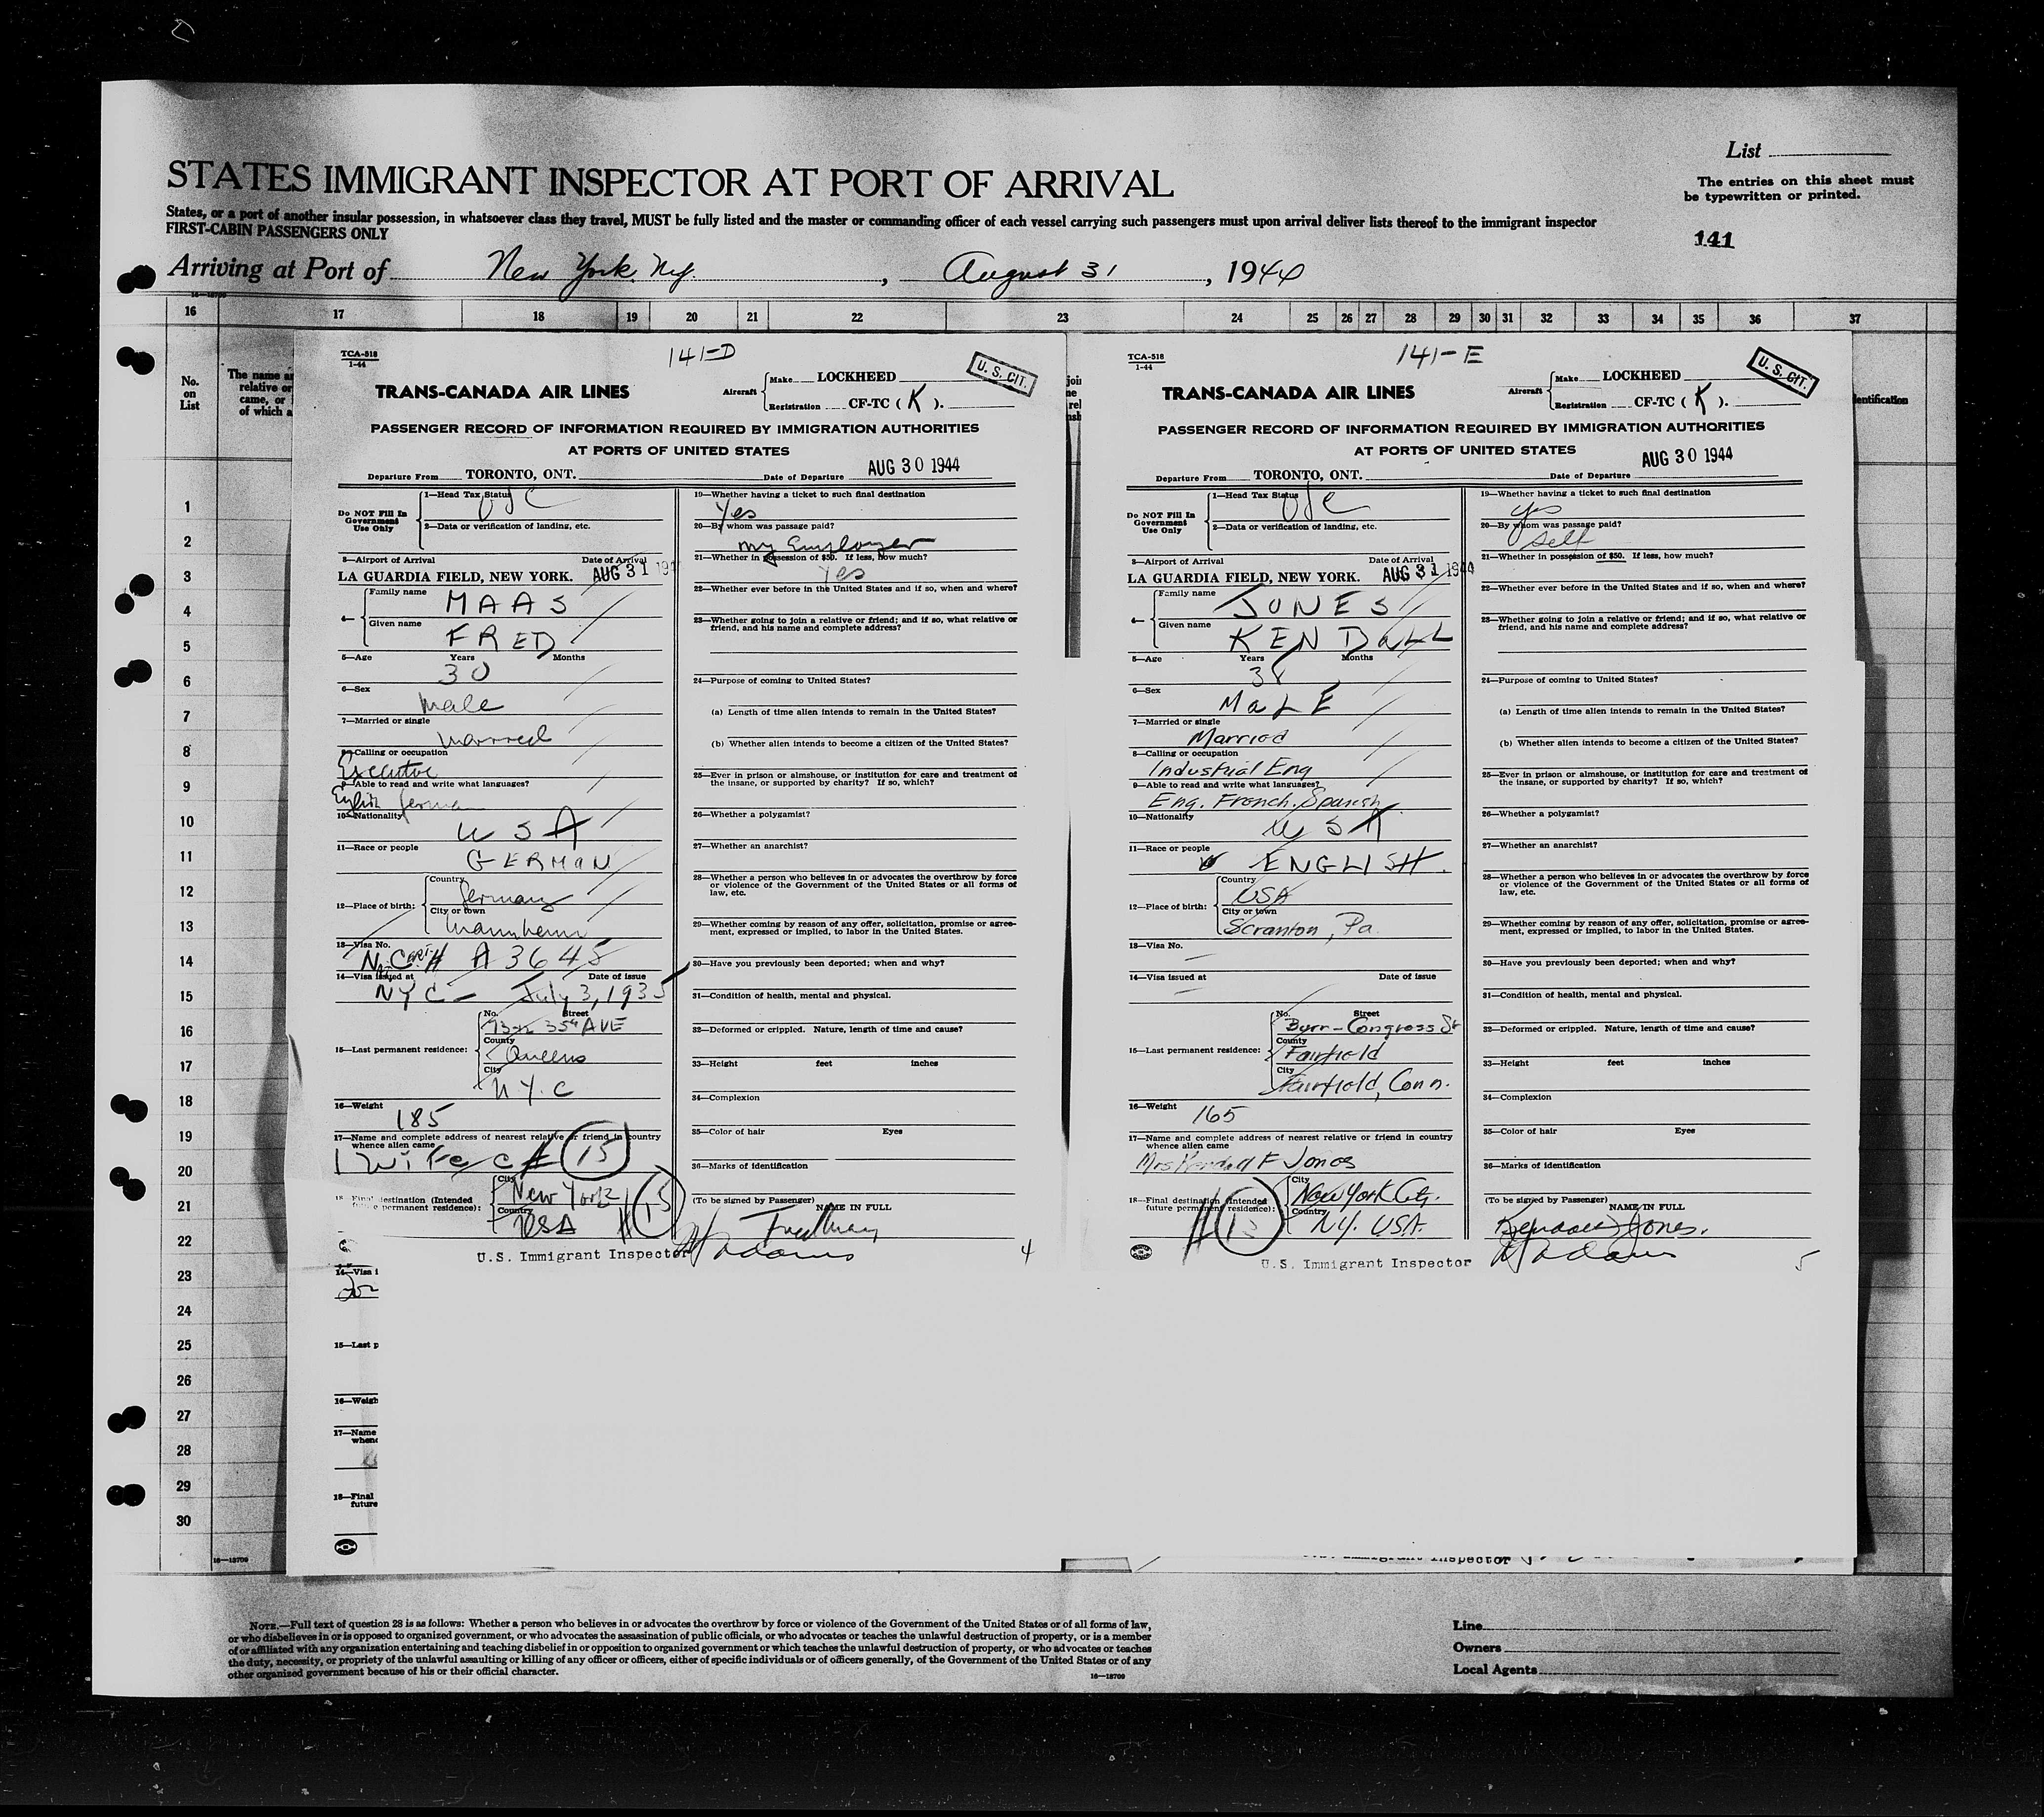 List
STATES IMMIGRANT INSPECTOR AT PORT OF ARRIVAL
The entries on this sheet must
be typewritten or printed.
States, or a port of another insular possession, in whatsoever class they travel, MUST be fully listed and the master or commanding officer of each vessel carrying such passengers must upon arrival deliver lists thereof to the immigrant inspector
FIRST-CABIN PASSENGERS ONLY
141
Arriving at Port of New York Ny., August 31, 1944
16 17 18 19 20 21 22 23 24 25 26 27 28 29 30 31 32 33 34 35 36 37
No.
on
List
The name a
relative or
came, or
of which a
entification
1
2
3
4
5
6
7
8
9
10
11
12
13
14
15
16
17
18
19
20
21
22
23
24
25
26
27
28
29
30
16-18709
TCA-518
1-44
141-D
U. S. CIT.
TRANS-CANADA AIR LINES
Aircraft
Make LOCKHEED
Registration CF-TC ( K ).
PASSENGER RECORD OF INFORMATION REQUIRED BY IMMIGRATION AUTHORITIES
AT PORTS OF UNITED STATES
Departure From TORONTO, ONT. Date of Departure AUG 30 1944
Do NOT Fill In
Government
Use Only
1—Head Tax Status USC
2—Data or verification of landing, etc.
3—Airport of Arrival Date of Arrival
LA GUARDIA FIELD, NEW YORK. AUG 31 194
4—
Family name MAAS
Given name FRED
5—Age Years Months
30
6—Sex
male
7—Married or single
married
8—Calling or occupation
Executive
9—Able to read and write what languages?
English German
10—Nationality
USA
11—Race or people
GERMAN
12—Place of birth:
Country
Germany
City or town
Mannheim
13—Visa No.
A 3645
14—Visa issued at Date of issue
NYC - July 3, 1935
15—Last permanent residence:
No. Street
35th AVE
County
Queens
City
N.Y.C
16—Weight
185
17—Name and complete address of nearest relative or friend in country
whence alien came
Wife c/o # 15
18—Final destination (Intended
future permanent residence):
City
New York
Country
USA #15
19—Whether having a ticket to such final destination
Yes
20—By whom was passage paid?
my Employer
21—Whether in possession of $50. If less, how much?
Yes
22—Whether ever before in the United States and if so, when and where?
23—Whether going to join a relative or friend; and if so, what relative or
friend, and his name and complete address?
24—Purpose of coming to United States?
(a) Length of time alien intends to remain in the United States?
(b) Whether alien intends to become a citizen of the United States?
25—Ever in prison or almshouse, or institution for care and treatment of
the insane, or supported by charity? If so, which?
26—Whether a polygamist?
27—Whether an anarchist?
28—Whether a person who believes in or advocates the overthrow by force
or violence of the Government of the United States or all forms of
law, etc.
29—Whether coming by reason of any offer, solicitation, promise or agree-
ment, expressed or implied, to labor in the United States.
30—Have you previously been deported; when and why?
31—Condition of health, mental and physical.
32—Deformed or crippled. Nature, length of time and cause?
33—Height feet inches
34—Complexion
35—Color of hair Eyes
36—Marks of identification
(To be signed by Passenger)
NAME IN FULL
Fred Maas
U.S. Immigrant Inspector Adams 4
14—Visa i
15—Last p
16—Weigh
17—Name
whenc
18—Final
future
TCA-518
1-44
141-E
U. S. CIT.
TRANS-CANADA AIR LINES
Aircraft
Make LOCKHEED
Registration CF-TC ( K ).
PASSENGER RECORD OF INFORMATION REQUIRED BY IMMIGRATION AUTHORITIES
AT PORTS OF UNITED STATES
Departure From TORONTO, ONT. Date of Departure AUG 30 1944
Do NOT Fill In
Government
Use Only
1—Head Tax Status USC
2—Data or verification of landing, etc.
3—Airport of Arrival Date of Arrival
LA GUARDIA FIELD, NEW YORK. AUG 31 1944
4—
Family name JONES
Given name KENDALL
5—Age Years Months
38
6—Sex
MALE
7—Married or single
Married
8—Calling or occupation
Industrial Eng
9—Able to read and write what languages?
Eng. French. Spanish
10—Nationality
USA
11—Race or people
ENGLISH.
12—Place of birth:
Country
USA
City or town
Scranton, Pa.
13—Visa No.
14—Visa issued at Date of issue
15—Last permanent residence:
No. Street
Burr-Congress St
County
Fairfield
City
Fairfield, Conn.
16—Weight
165
17—Name and complete address of nearest relative or friend in country
whence alien came
Mrs Kendall F Jones
18—Final destination (Intended
future permanent residence):
City
New York City.
Country
N.Y. USA.
19—Whether having a ticket to such final destination
yes
20—By whom was passage paid?
Self
21—Whether in possession of $50. If less, how much?
22—Whether ever before in the United States and if so, when and where?
23—Whether going to join a relative or friend; and if so, what relative or
friend, and his name and complete address?
24—Purpose of coming to United States?
(a) Length of time alien intends to remain in the United States?
(b) Whether alien intends to become a citizen of the United States?
25—Ever in prison or almshouse, or institution for care and treatment of
the insane, or supported by charity? If so, which?
26—Whether a polygamist?
27—Whether an anarchist?
28—Whether a person who believes in or advocates the overthrow by force
or violence of the Government of the United States or all forms of
law, etc.
29—Whether coming by reason of any offer, solicitation, promise or agree-
ment, expressed or implied, to labor in the United States.
30—Have you previously been deported; when and why?
31—Condition of health, mental and physical.
32—Deformed or crippled. Nature, length of time and cause?
33—Height feet inches
34—Complexion
35—Color of hair Eyes
36—Marks of identification
(To be signed by Passenger)
NAME IN FULL
Kendall Jones.
U.S. Immigrant Inspector Adams 5
Immigrant Inspector
NOTE.—Full text of question 28 is as follows: Whether a person who believes in or advocates the overthrow by force or violence of the Government of the United States or of all forms of law,
or who disbelieves in or is opposed to organized government, or who advocates the assassination of public officials, or who advocates or teaches the unlawful destruction of property, or is a member
of or affiliated with any organization entertaining and teaching disbelief in or opposition to organized government or which teaches the unlawful destruction of property, or who advocates or teaches
the duty, necessity, or propriety of the unlawful assaulting or killing of any officer or officers, either of specific individuals or of officers generally, of the Government of the United States or of any
other organized government because of his or their official character.
16-18709
Line
Owners
Local Agents